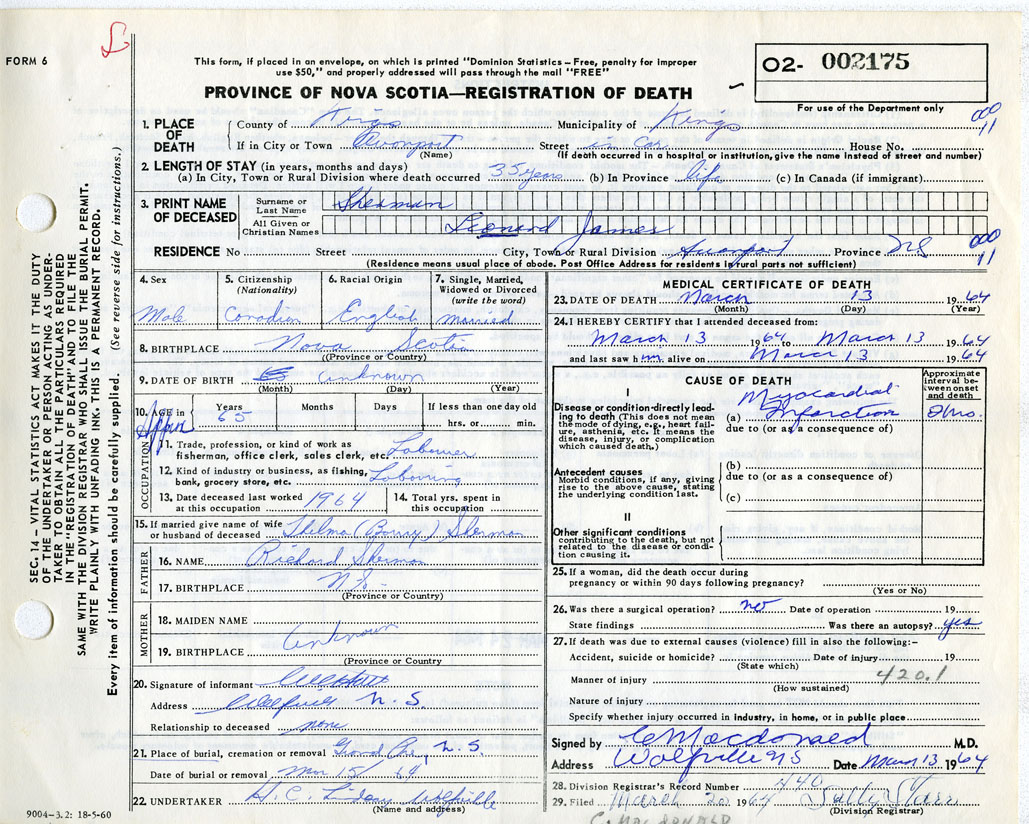 FORM 6
This form, if placed in an envelope, on which is printed "Dominion Statistics – Free, penalty for improper
use $50," and properly addressed will pass through the mail "FREE"
PROVINCE OF NOVA SCOTIA—REGISTRATION OF DEATH
02- 002175
For use of the Department only
1. PLACE OF DEATH
County of Kings Municipality of Kings 000 11
If in City or Town Avonport Street in car House No.
(Name) (If death occurred in a hospital or institution, give the name instead of street and number)
2. LENGTH OF STAY (in years, months and days)
(a) In City, Town or Rural Division where death occurred 35 years (b) In Province life (c) In Canada (if immigrant)
3. PRINT NAME OF DECEASED
Surname or Last Name Sherman
All Given or Christian Names Leonard James
RESIDENCE No Street City, Town or Rural Division Avonport Province NS 000 11
(Residence means usual place of abode. Post Office Address for residents in rural parts not sufficient)
4. Sex Male
5. Citizenship (Nationality) Canadian
6. Racial Origin English
7. Single, Married, Widowed or Divorced (write the word) married
8. BIRTHPLACE Nova Scotia
(Province or Country)
9. DATE OF BIRTH unknown
(Month) (Day) (Year)
10. AGE in Years 65 Months Days If less than one day old hrs. or min.
OCCUPATION
11. Trade, profession, or kind of work as
fisherman, office clerk, sales clerk, etc. Labourer
12. Kind of industry or business, as fishing,
bank, grocery store, etc. Labouring
13. Date deceased last worked at this occupation 1964
14. Total yrs. spent in this occupation
15. If married give name of wife
or husband of deceased Thelma (Borry) Sherman
FATHER
16. NAME Richard Sherman
17. BIRTHPLACE N.S.
(Province or Country)
MOTHER
18. MAIDEN NAME
unknown
19. BIRTHPLACE
(Province or Country
20. Signature of informant
Address Wolfville N.S.
Relationship to deceased none
21. Place of burial, cremation or removal Grand Pre, N.S.
Date of burial or removal Mar 15/64
22. UNDERTAKER H.C. Lindsay Wolfville
(Name and address)
9004–3.2: 18-5-60
MEDICAL CERTIFICATE OF DEATH
23. DATE OF DEATH March 13 1964
(Month) (Day) (Year)
24. I HEREBY CERTIFY that I attended deceased from:
March 13 1964 to March 13 1964
and last saw him alive on March 13 1964
CAUSE OF DEATH
Approximate interval between onset and death
I
Disease or condition-directly leading to death (This does not mean the mode of dying, e.g., heart failure, asthenia, etc. It means the disease, injury, or complication which caused death.)
(a) Myocardial Infarction 2 hrs.
due to (or as a consequence of)
Antecedent causes
Morbid conditions, if any, giving rise to the above cause, stating the underlying condition last.
(b)
due to (or as a consequence of)
(c)
II
Other significant conditions
contributing to the death, but not related to the disease or condition causing it.
25. If a woman, did the death occur during
pregnancy or within 90 days following pregnancy?
(Yes or No)
26. Was there a surgical operation? no Date of operation 19
State findings Was there an autopsy? yes
27. If death was due to external causes (violence) fill in also the following:–
Accident, suicide or homicide? Date of injury 19
(State which)
Manner of injury 420.1
(How sustained)
Nature of injury
Specify whether injury occurred in industry, in home, or in public place
Signed by C Macdonald M.D.
Address Wolfville NS Date March 13 1964
28. Division Registrar's Record Number 440
29. Filed March 20 1964 Sally Starr
(Division Registrar)
C. MACDONALD
SEC. 14 – VITAL STATISTICS ACT MAKES IT THE DUTY
OF THE UNDERTAKER OR PERSON ACTING AS UNDER-
TAKER TO OBTAIN ALL THE PARTICULARS REQUIRED
IN THE "REGISTRATION OF DEATH" AND TO FILE THE
SAME WITH THE DIVISION REGISTRAR WHO SHALL ISSUE THE BURIAL PERMIT.
WRITE PLAINLY WITH UNFADING INK. THIS IS A PERMANENT RECORD.
Every item of information should be carefully supplied. (See reverse side for instructions.)